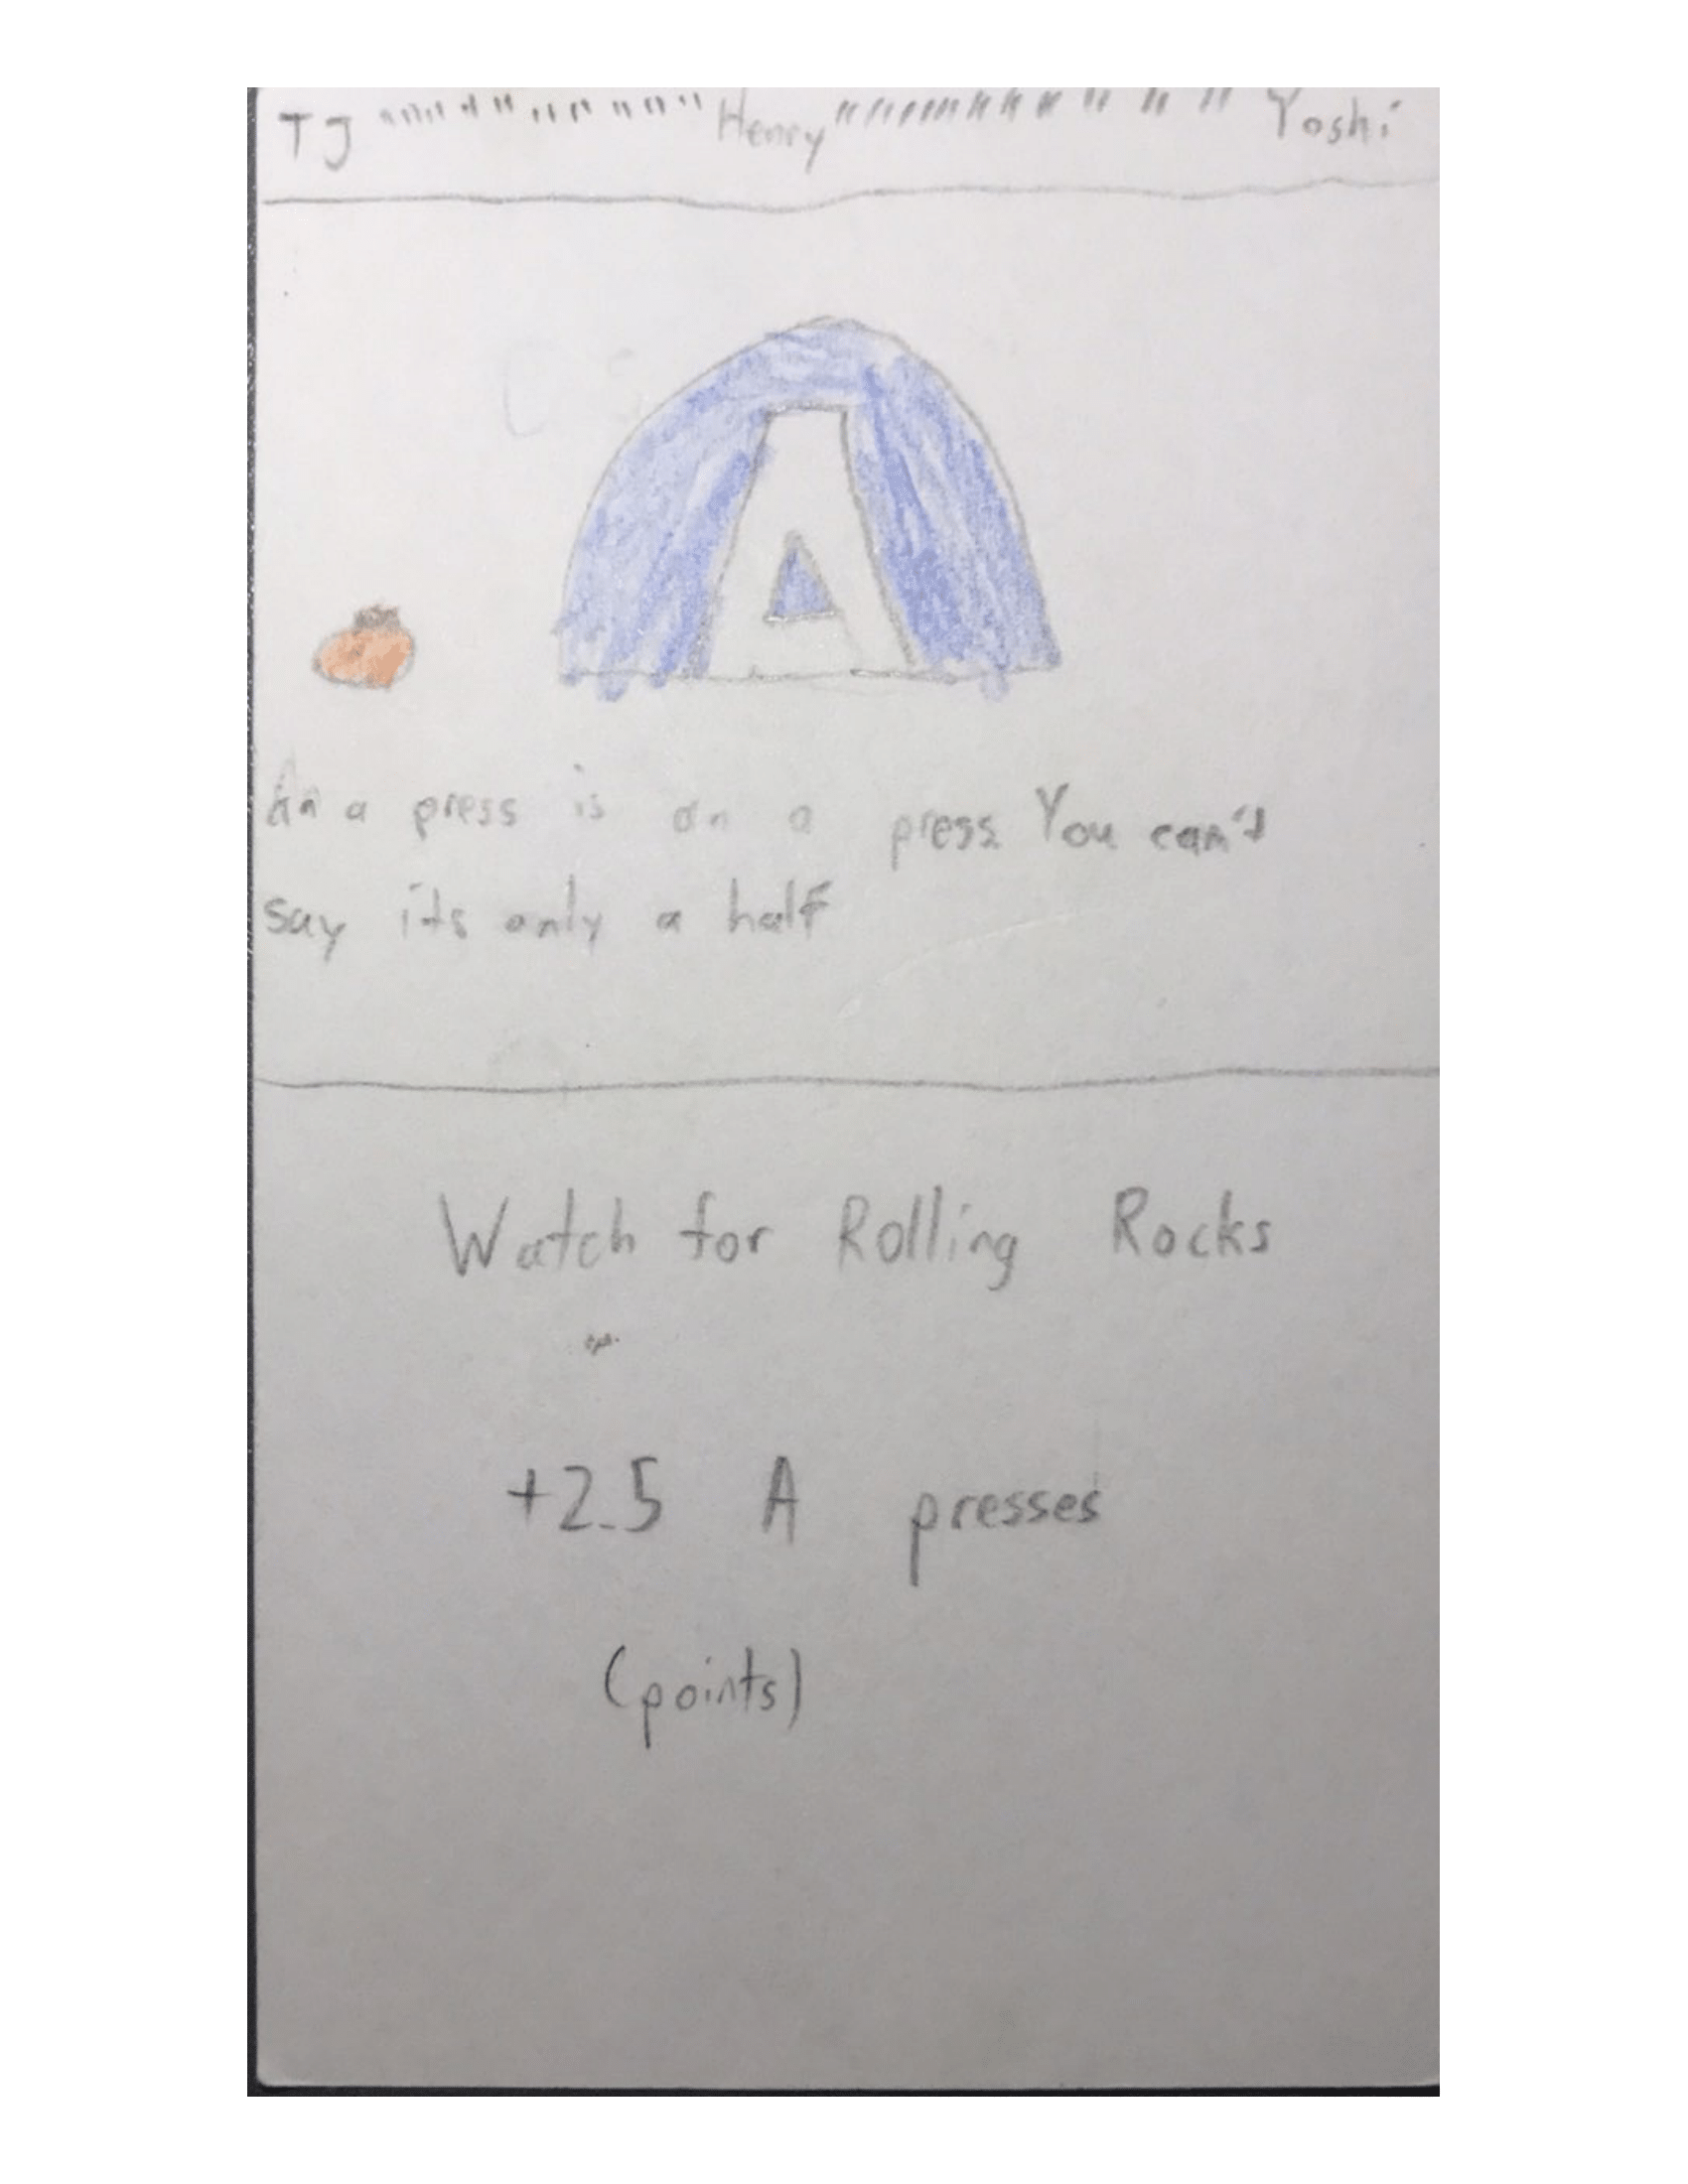 TJ """""""""""" Henry """""""""""""" Yoshi
A
An a press is an a press. You can't
say its only a half
Watch for Rolling Rocks
+2.5 A presses
(points)